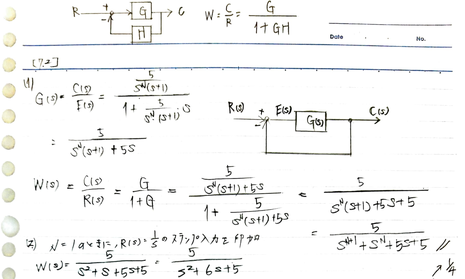 R + - G H C W = C/R = G/(1+GH)
Date No.
[7.2]
(1)
G(s) = C(s)/E(s) = (5/(S^N(S+1)))/(1 + 5/(S^N(S+1))·S)
= 5/(S^N(S+1)+5S)
R(s) + - E(s) G(s) C(s)
W(s) = C(s)/R(s) = G/(1+G) = (5/(S^N(S+1)+5S))/(1 + 5/(S^N(S+1)+5S)) = 5/(S^N(S+1)+5S+5)
= 5/(S^{N+1}+S^N+5S+5) //
(2) N=1のとき, R(s)=1/S のステップ入力を印加
W(s) = 5/(S²+S+5S+5) = 5/(S²+6S+5)